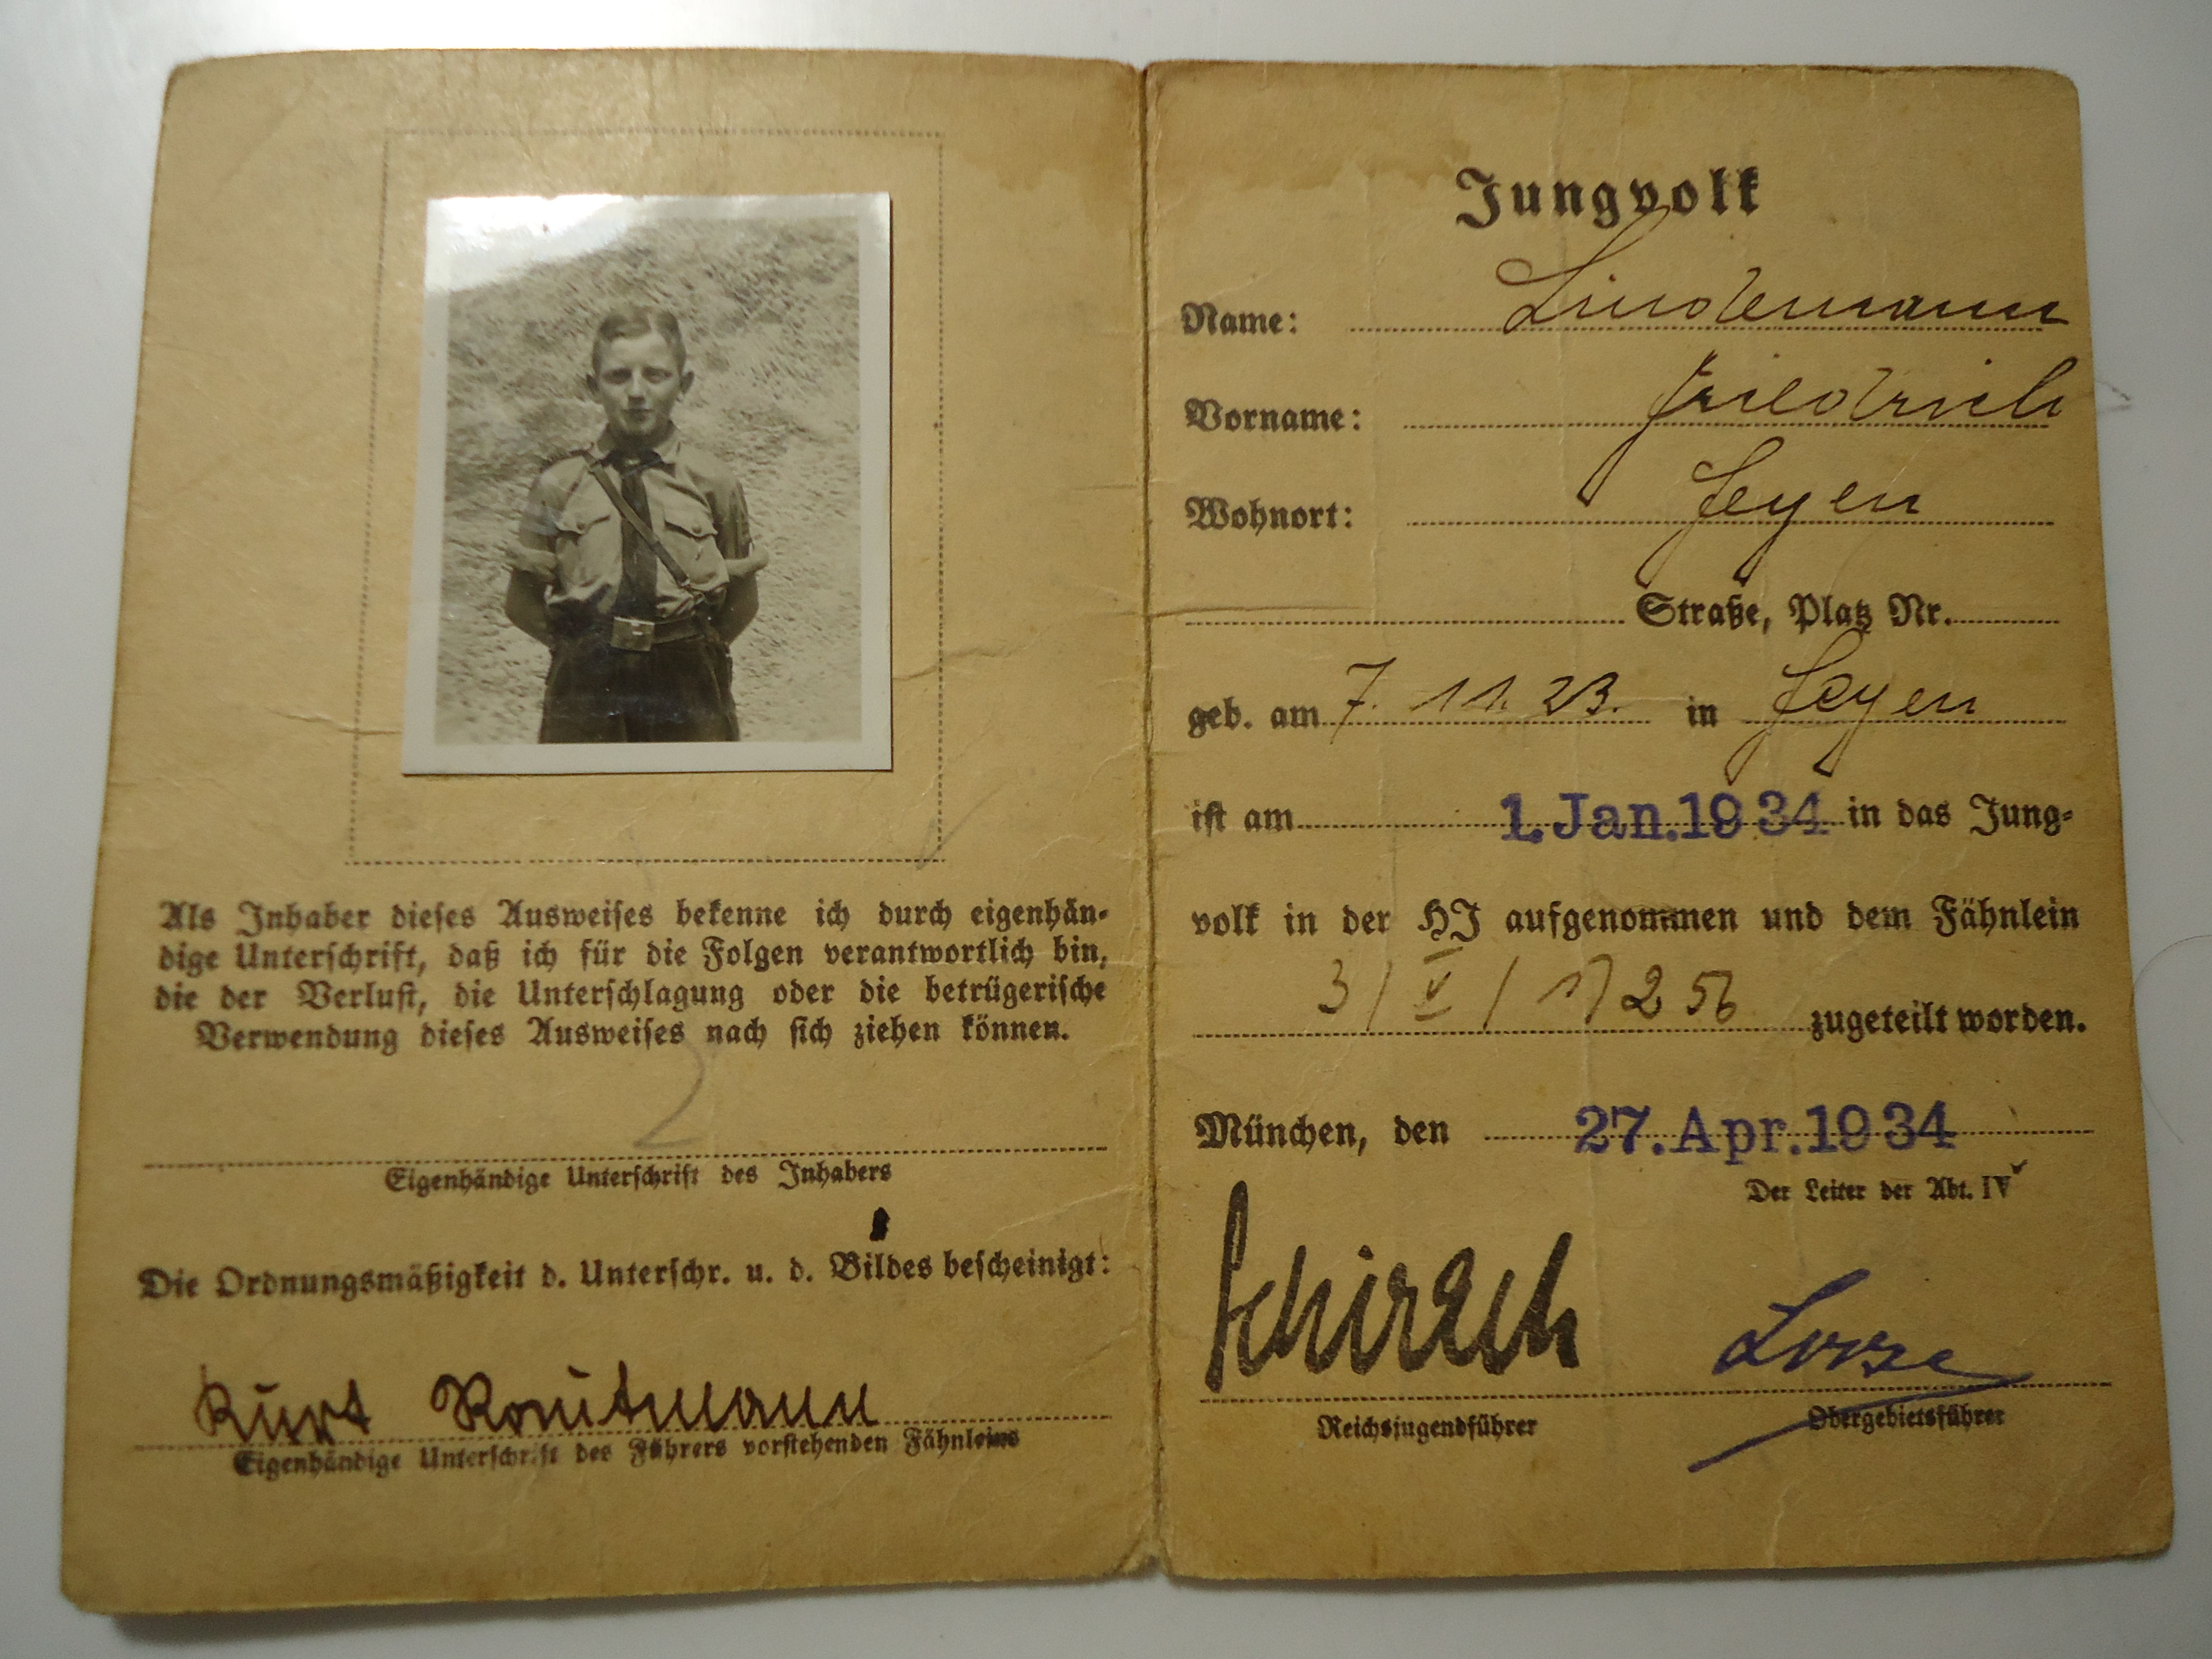 Als Inhaber dieses Ausweises bekenne ich durch eigenhän-
dige Unterschrift, daß ich für die Folgen verantwortlich bin,
die der Verlust, die Unterschlagung oder die betrügerische
Verwendung dieses Ausweises nach sich ziehen können.
Eigenhändige Unterschrift des Inhabers
Die Ordnungsmäßigkeit d. Unterschr. u. d. Bildes bescheinigt:
Kurt
Eigenhändige Unterschrift des Führers vorstehenden Fähnleins
Jungvolk
Name: Lindemann
Vorname: Friedrich
Wohnort: Feyen
Straße, Platz Nr.
geb. am 7. 11. 23. in Feyen
ist am 1. Jan. 1934 in das Jung-
volk in der HJ aufgenommen und dem Fähnlein
3 / V / zugeteilt worden.
München, den 27. Apr. 1934
Der Leiter der Abt. IV
Schirach
Reichsjugendführer Obergebietsführer